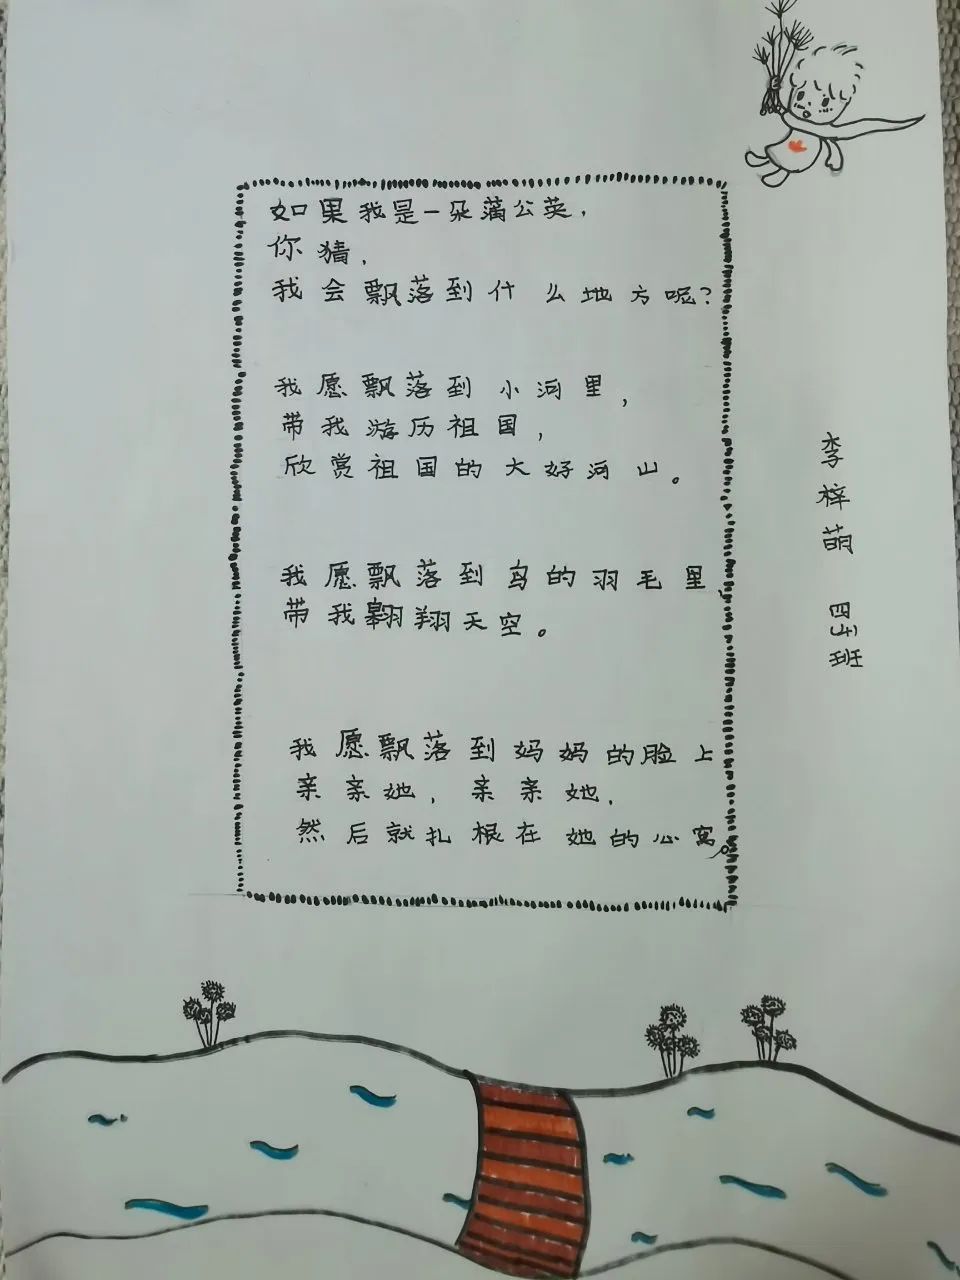 如果我是一朵蒲公英,
你猜,
我会飘落到什么地方呢?
我愿飘落到小河里,
带我游历祖国,
欣赏祖国的大好河山。
我愿飘落到鸟的羽毛里,
带我翱翔天空。
我愿飘落到妈妈的脸上
亲亲她,亲亲她,
然后就扎根在她的心窝。
李梓萌 四5班